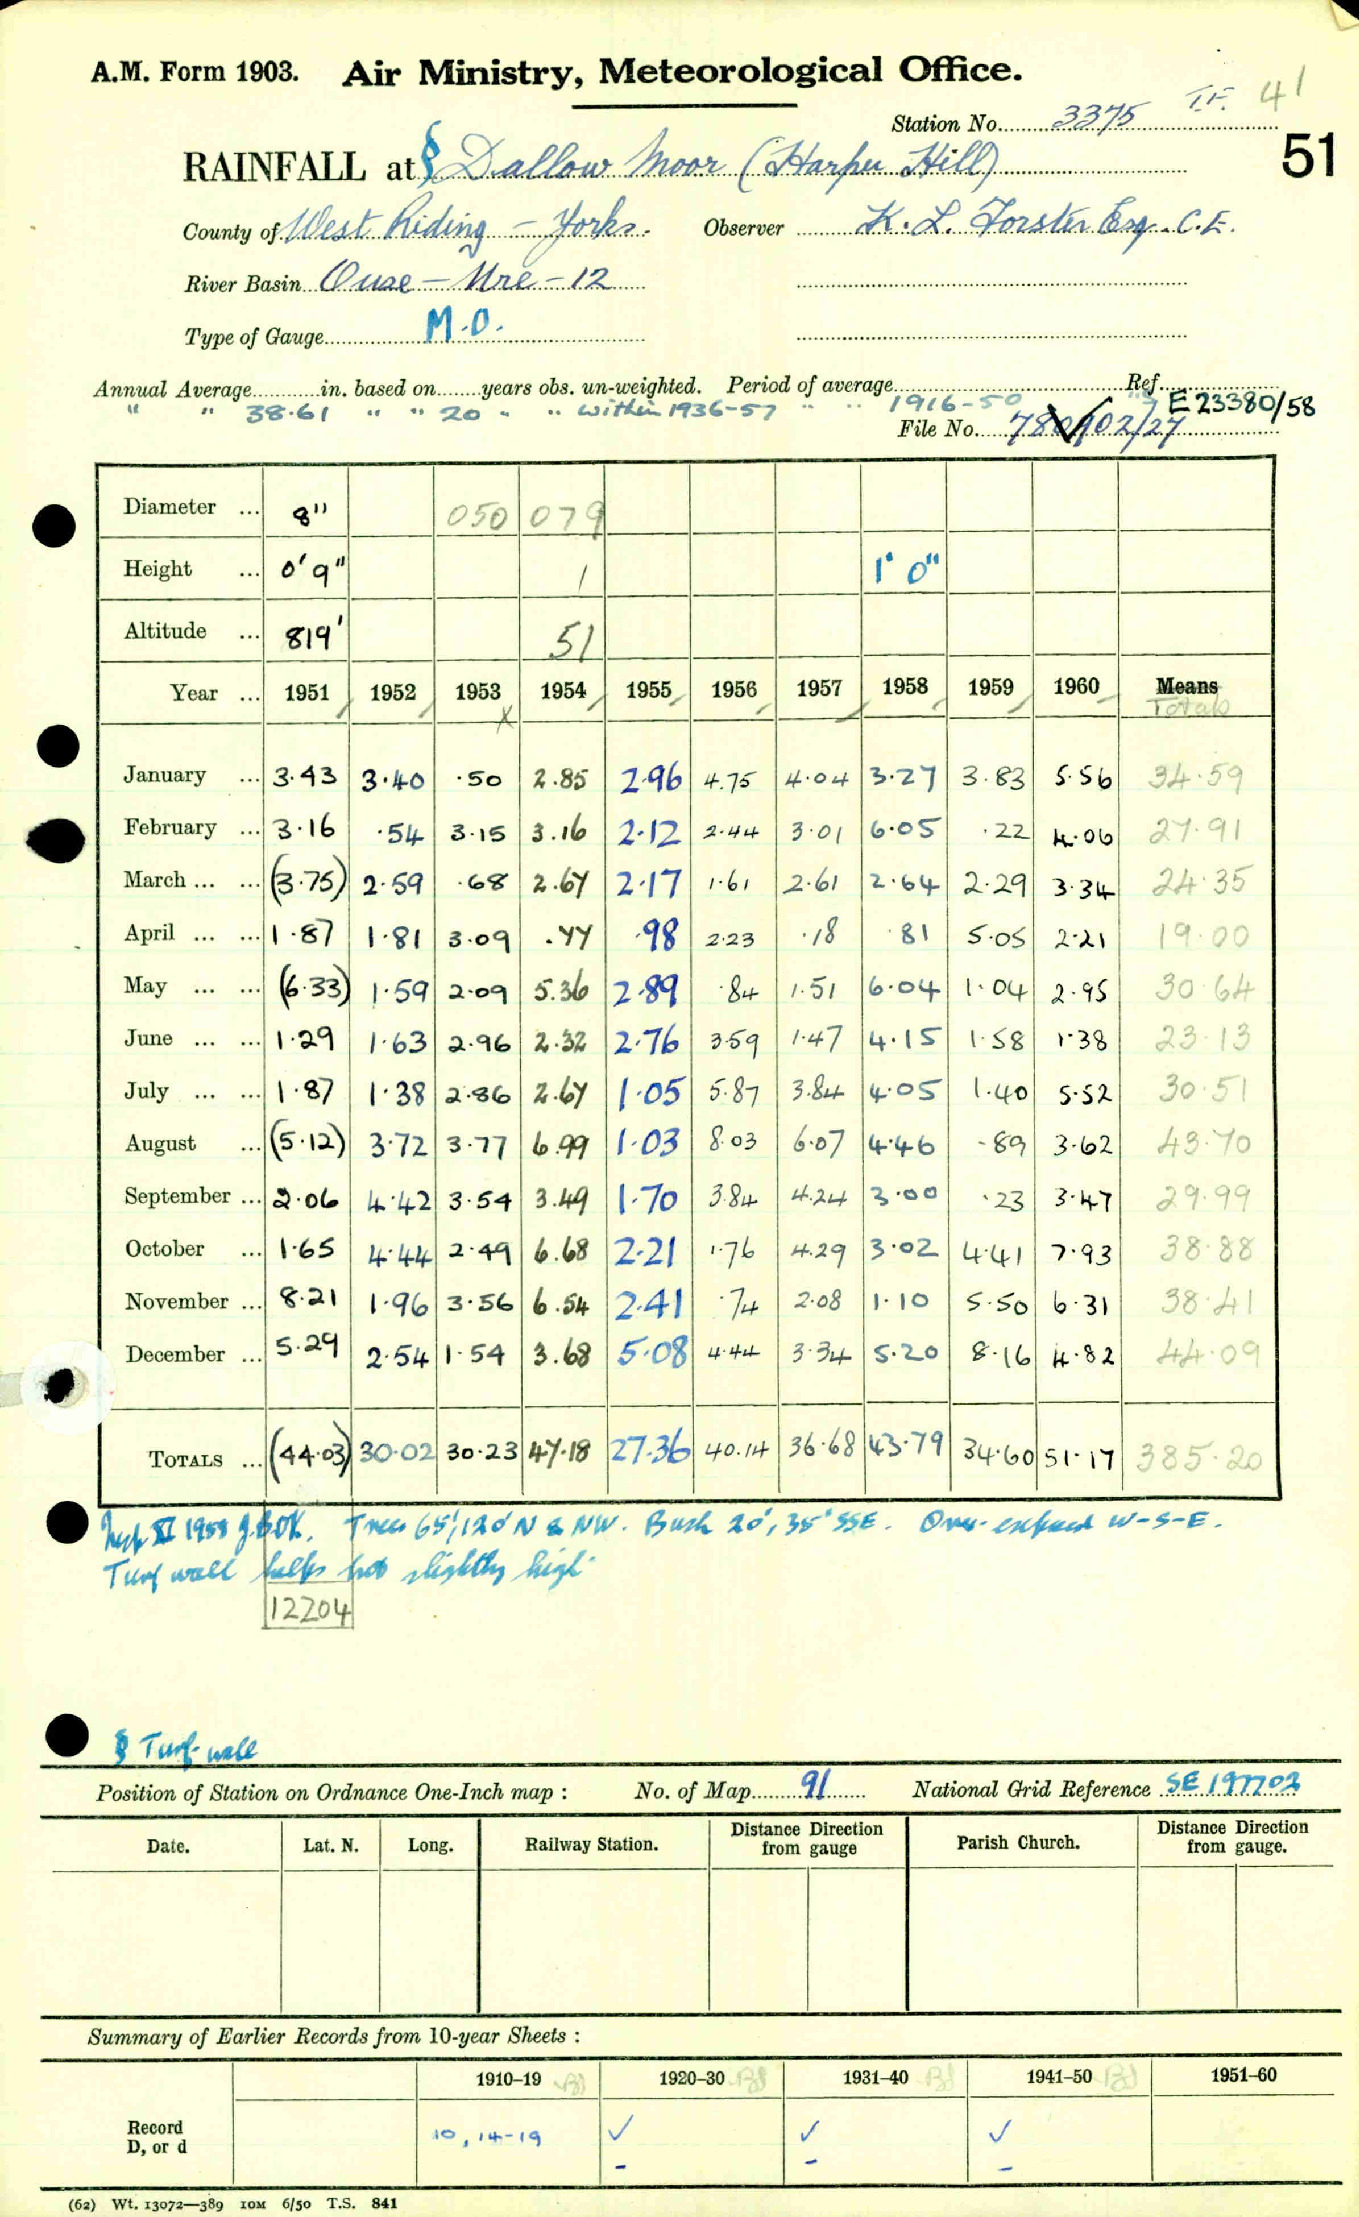 A.M. Form 1903. Air Ministry, Meteorological Office.
T.F. 41
Station No. 3375
51
RAINFALL at § Dallow Moor (Harper Hill)
County of West Riding - Yorks. Observer K. L. Forster Esq. C.E.
River Basin Ouse - Ure - 12
Type of Gauge M.O.
Annual Average in. based on years obs. un-weighted. Period of average Ref.
" " 38.61 " " 20 " " within 1936-57 " " 1916-50 " E 23380/58
File No. 780902/27
Diameter ... 8" 050 079
Height ... 0' 9" 1 1' 0"
Altitude ... 819' 51
Year ... 1951 1952 1953 1954 1955 1956 1957 1958 1959 1960 Means
x Totals
January ... 3.43 3.40 .50 2.85 2.96 4.75 4.04 3.27 3.83 5.56 34.59
February ... 3.16 .54 3.15 3.16 2.12 2.44 3.01 6.05 .22 4.06 27.91
March ... ... (3.75) 2.59 .68 2.67 2.17 1.61 2.61 2.64 2.29 3.34 24.35
April ... ... 1.87 1.81 3.09 .77 .98 2.23 .18 .81 5.05 2.21 19.00
May ... ... (6.33) 1.59 2.09 5.36 2.89 .84 1.51 6.04 1.04 2.95 30.64
June ... ... 1.29 1.63 2.96 2.32 2.76 3.59 1.47 4.15 1.58 1.38 23.13
July ... ... 1.87 1.38 2.86 2.67 1.05 5.87 3.84 4.05 1.40 5.52 30.51
August ... (5.12) 3.72 3.77 6.99 1.03 8.03 6.07 4.46 .89 3.62 43.70
September ... 2.06 4.42 3.54 3.49 1.70 3.84 4.24 3.00 .23 3.47 29.99
October ... 1.65 4.44 2.49 6.68 2.21 1.76 4.29 3.02 4.41 7.93 38.88
November ... 8.21 1.96 3.56 6.54 2.41 .74 2.08 1.10 5.50 6.31 38.41
December ... 5.29 2.54 1.54 3.68 5.08 4.44 3.34 5.20 8.16 4.82 44.09
TOTALS ... (44.03) 30.02 30.23 47.18 27.36 40.14 36.68 43.79 34.60 51.17 385.20
XI 1958 Trees 65', 120' N & NW. Bush 20', 35' SSE. Over-exposed W-S-E.
Turf wall helps but slightly high.
12204
§ Turf-wall
Position of Station on Ordnance One-Inch map : No. of Map 91 National Grid Reference SE 197702
Date. Lat. N. Long. Railway Station. Distance Direction from gauge Parish Church. Distance Direction from gauge.
Summary of Earlier Records from 10-year Sheets :
1910-19 1920-30 1931-40 1941-50 1951-60
Record
D, or d
10, 14-19 ✓ ✓ ✓
- - -
(62) Wt. 13072—389 10M 6/50 T.S. 841